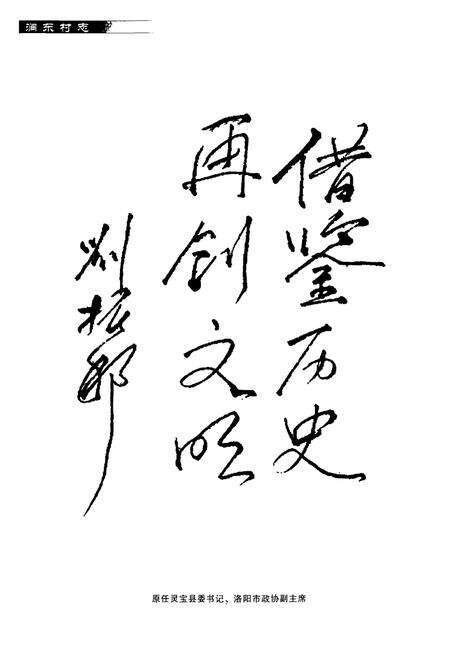 涧东村志
借鉴历史
再创文明
刘
原任灵宝县委书记、洛阳市政协副主席